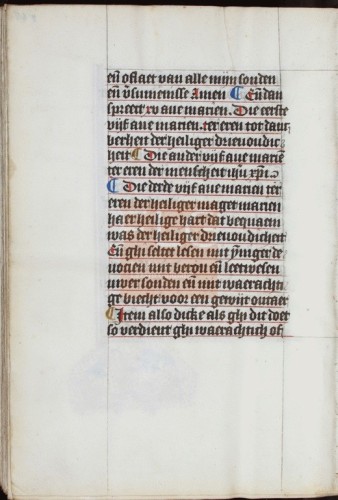 eñ oflaet van alle mijn sonden
eñ v̄sumenisse Amen ¶ Eñ dan
spreect xv aue marien. Die eerste
vijf aue marien. ter eren tot dau
verheit der heiliger drieuoudic
heit ¶ Die ander vijf aue mariē
ter eren der menscheit ihū xp̄i.
¶ Die derde vijf aue marien ter
eren der heiliger maget marien
haer heilige hart dat bequaem
was der heiliger drieuoudicheit
Eñ ghi seltet lesen mit ȳniger de
uocien mit berou eñ leetwesen
uwer sonden eñ mit waerachti
ge biecht voor een gewijt outaer
¶ Item also dicke als ghi dit doet
so verdient ghi waerachtich of